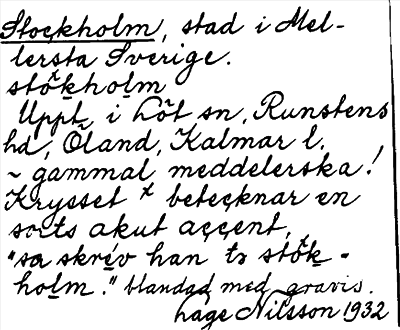 Stockholm, stad i Mel-
lersta Sverige.
stø̂kholm
Uppt. i Löt sn, Runstens
hd, Öland, Kalmar l.
~ gammal meddelerska!
Krysset x betecknar en
sorts akut accent,
"sa skrév han tɘ stök-
holm." blandad med gravis.
Åge Nilsson 1932